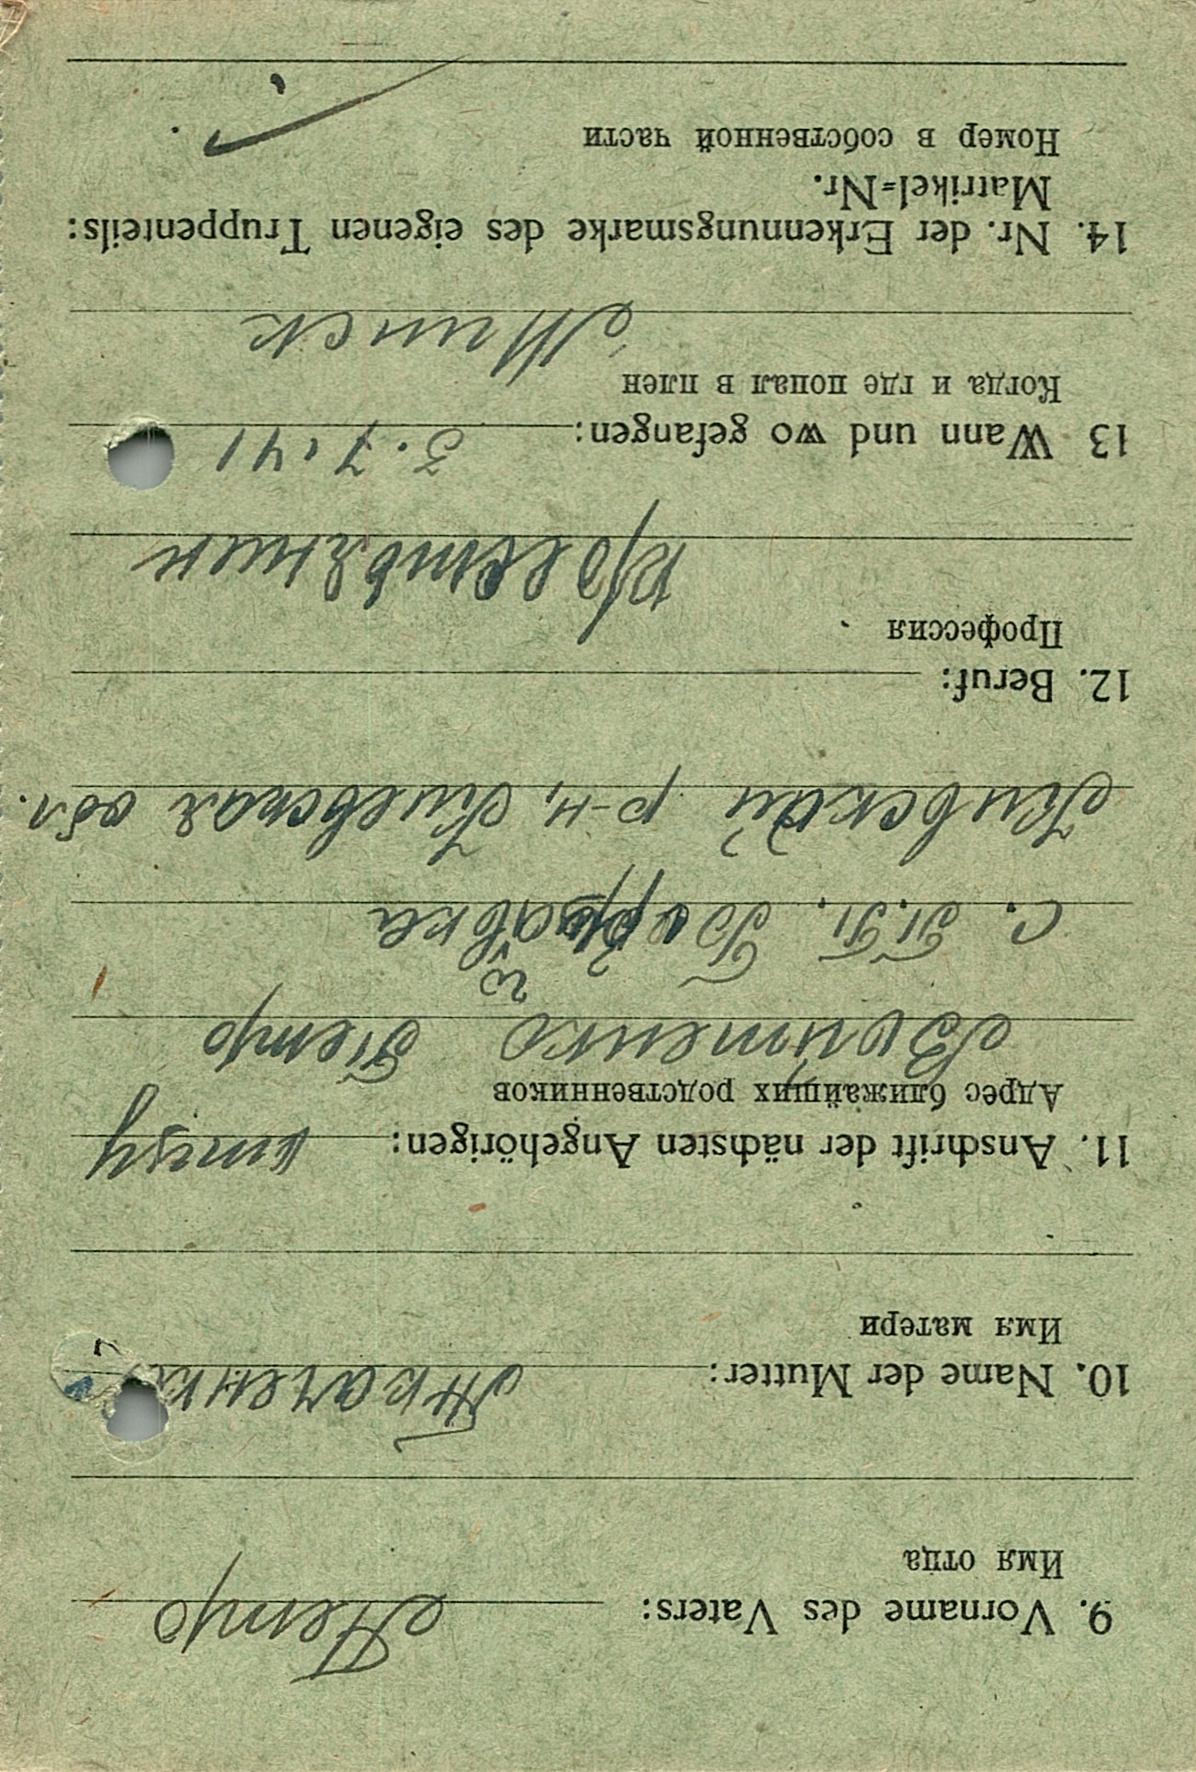 9. Vorname des Vaters:
Имя отца
Петро
10. Name der Mutter: Ткаченко
Имя матери
11. Anschrift der nächsten Angehörigen:
Адрес ближайших родственников
Войтенко Петро
с. П.П.
Киевский р-н, Киевская обл.
12. Beruf:
Профессия
Крестьянин
13 Wann und wo gefangen: 3.7.41
Когда и где попал в плен
Минск
14. Nr. der Erkennungsmarke des eigenen Truppenteils:
Matrikel=Nr.
Номер в собственной части